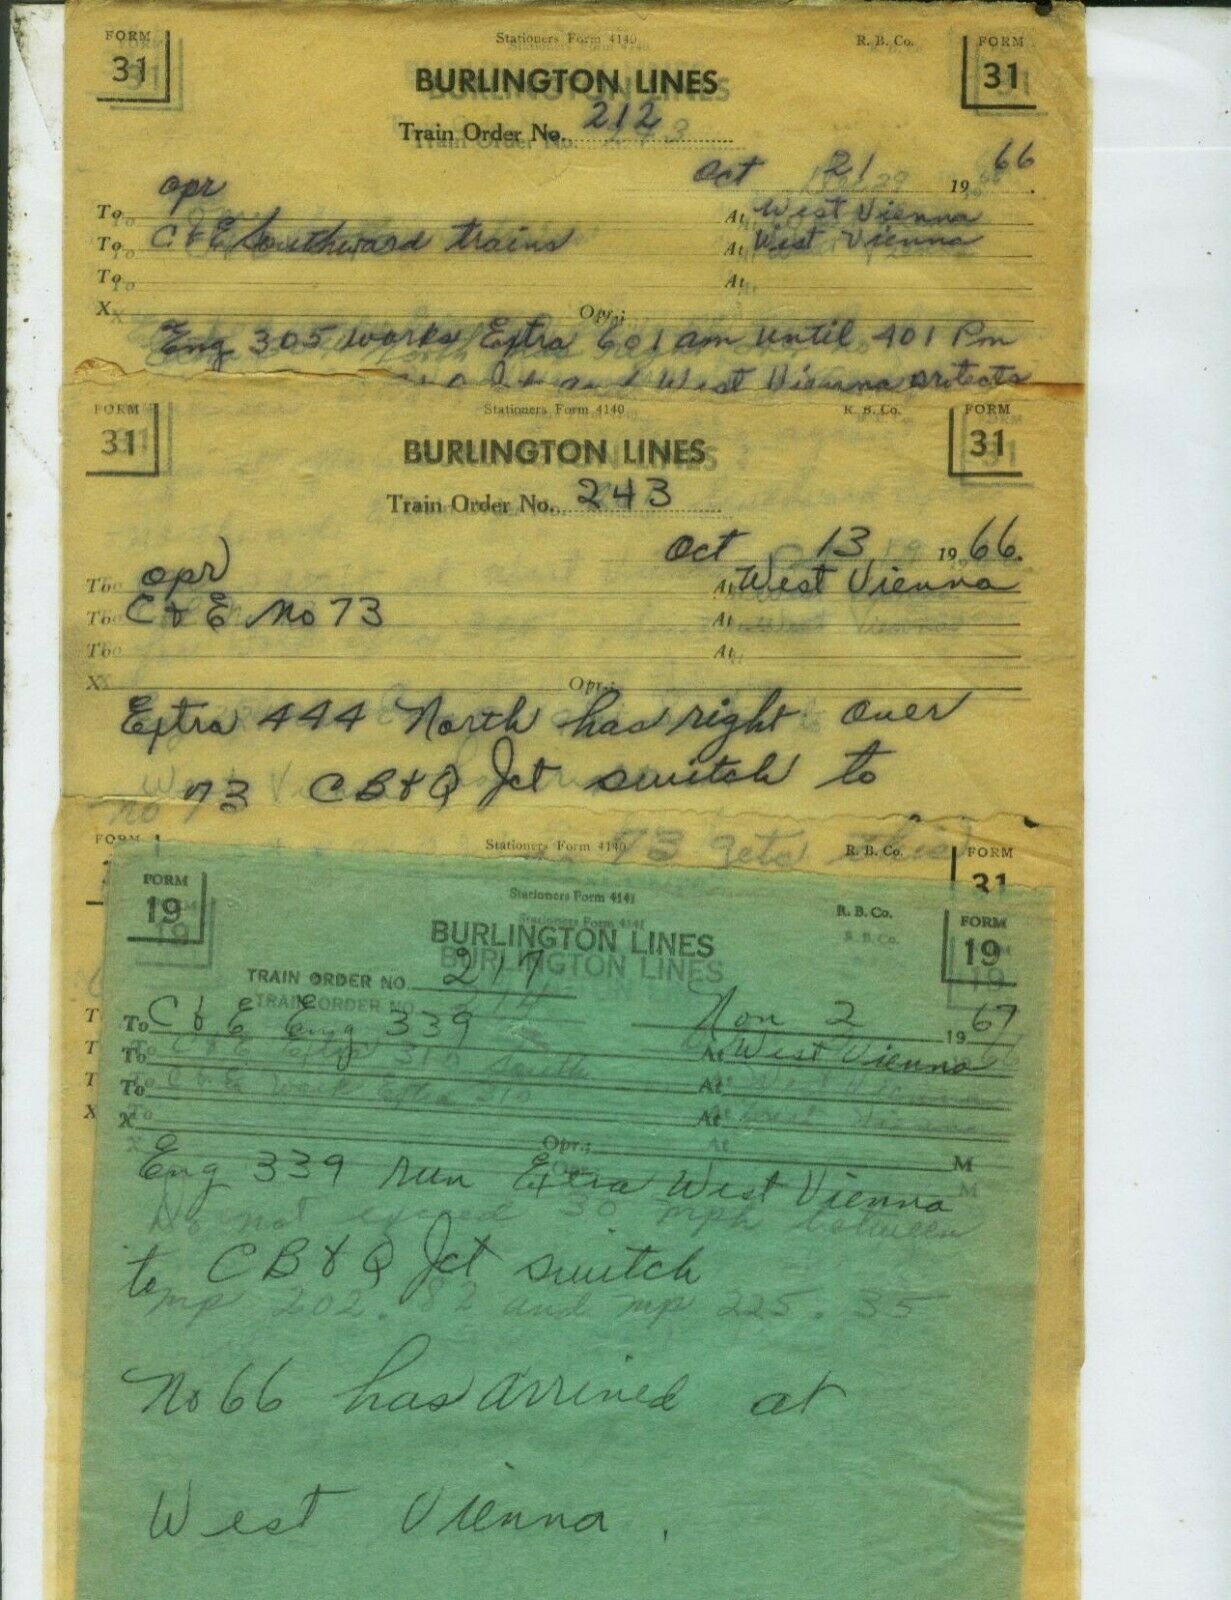 FORM 31 Stationers Form 4140 R. B. Co. FORM 31
BURLINGTON LINES
Train Order No. 212
Oct 21 1966.
To opr At West Vienna
To C & E Southward trains At West Vienna
To At
X Opr.;
Eng 305 works Extra 601 am until 401 Pm
and West Vienna protects
FORM 31 Stationers Form 4140 R. B. Co. FORM 31
BURLINGTON LINES
Train Order No. 243
Oct 13 1966.
To opr At West Vienna
To C & E No 73 At
To At
X Opr.;
Extra 444 North has right over
No 73 CB&Q Jct switch to
73 gets this
FORM Stationers Form 4140 R. B. Co. FORM
31
FORM 19 Stationers Form 4141 R. B. Co. FORM 19
BURLINGTON LINES
TRAIN ORDER NO. 217
Nov 2 1967
To C & E Eng 339 At West Vienna
To C & E Extra 310 South At
To C & E Work Extra 310 At
X Opr.; M
Eng 339 run Extra West Vienna
Do not exceed 30 mph between
to CB&Q Jct switch
mp 202.82 and mp 225.35
No 66 has arrived at
West Vienna.